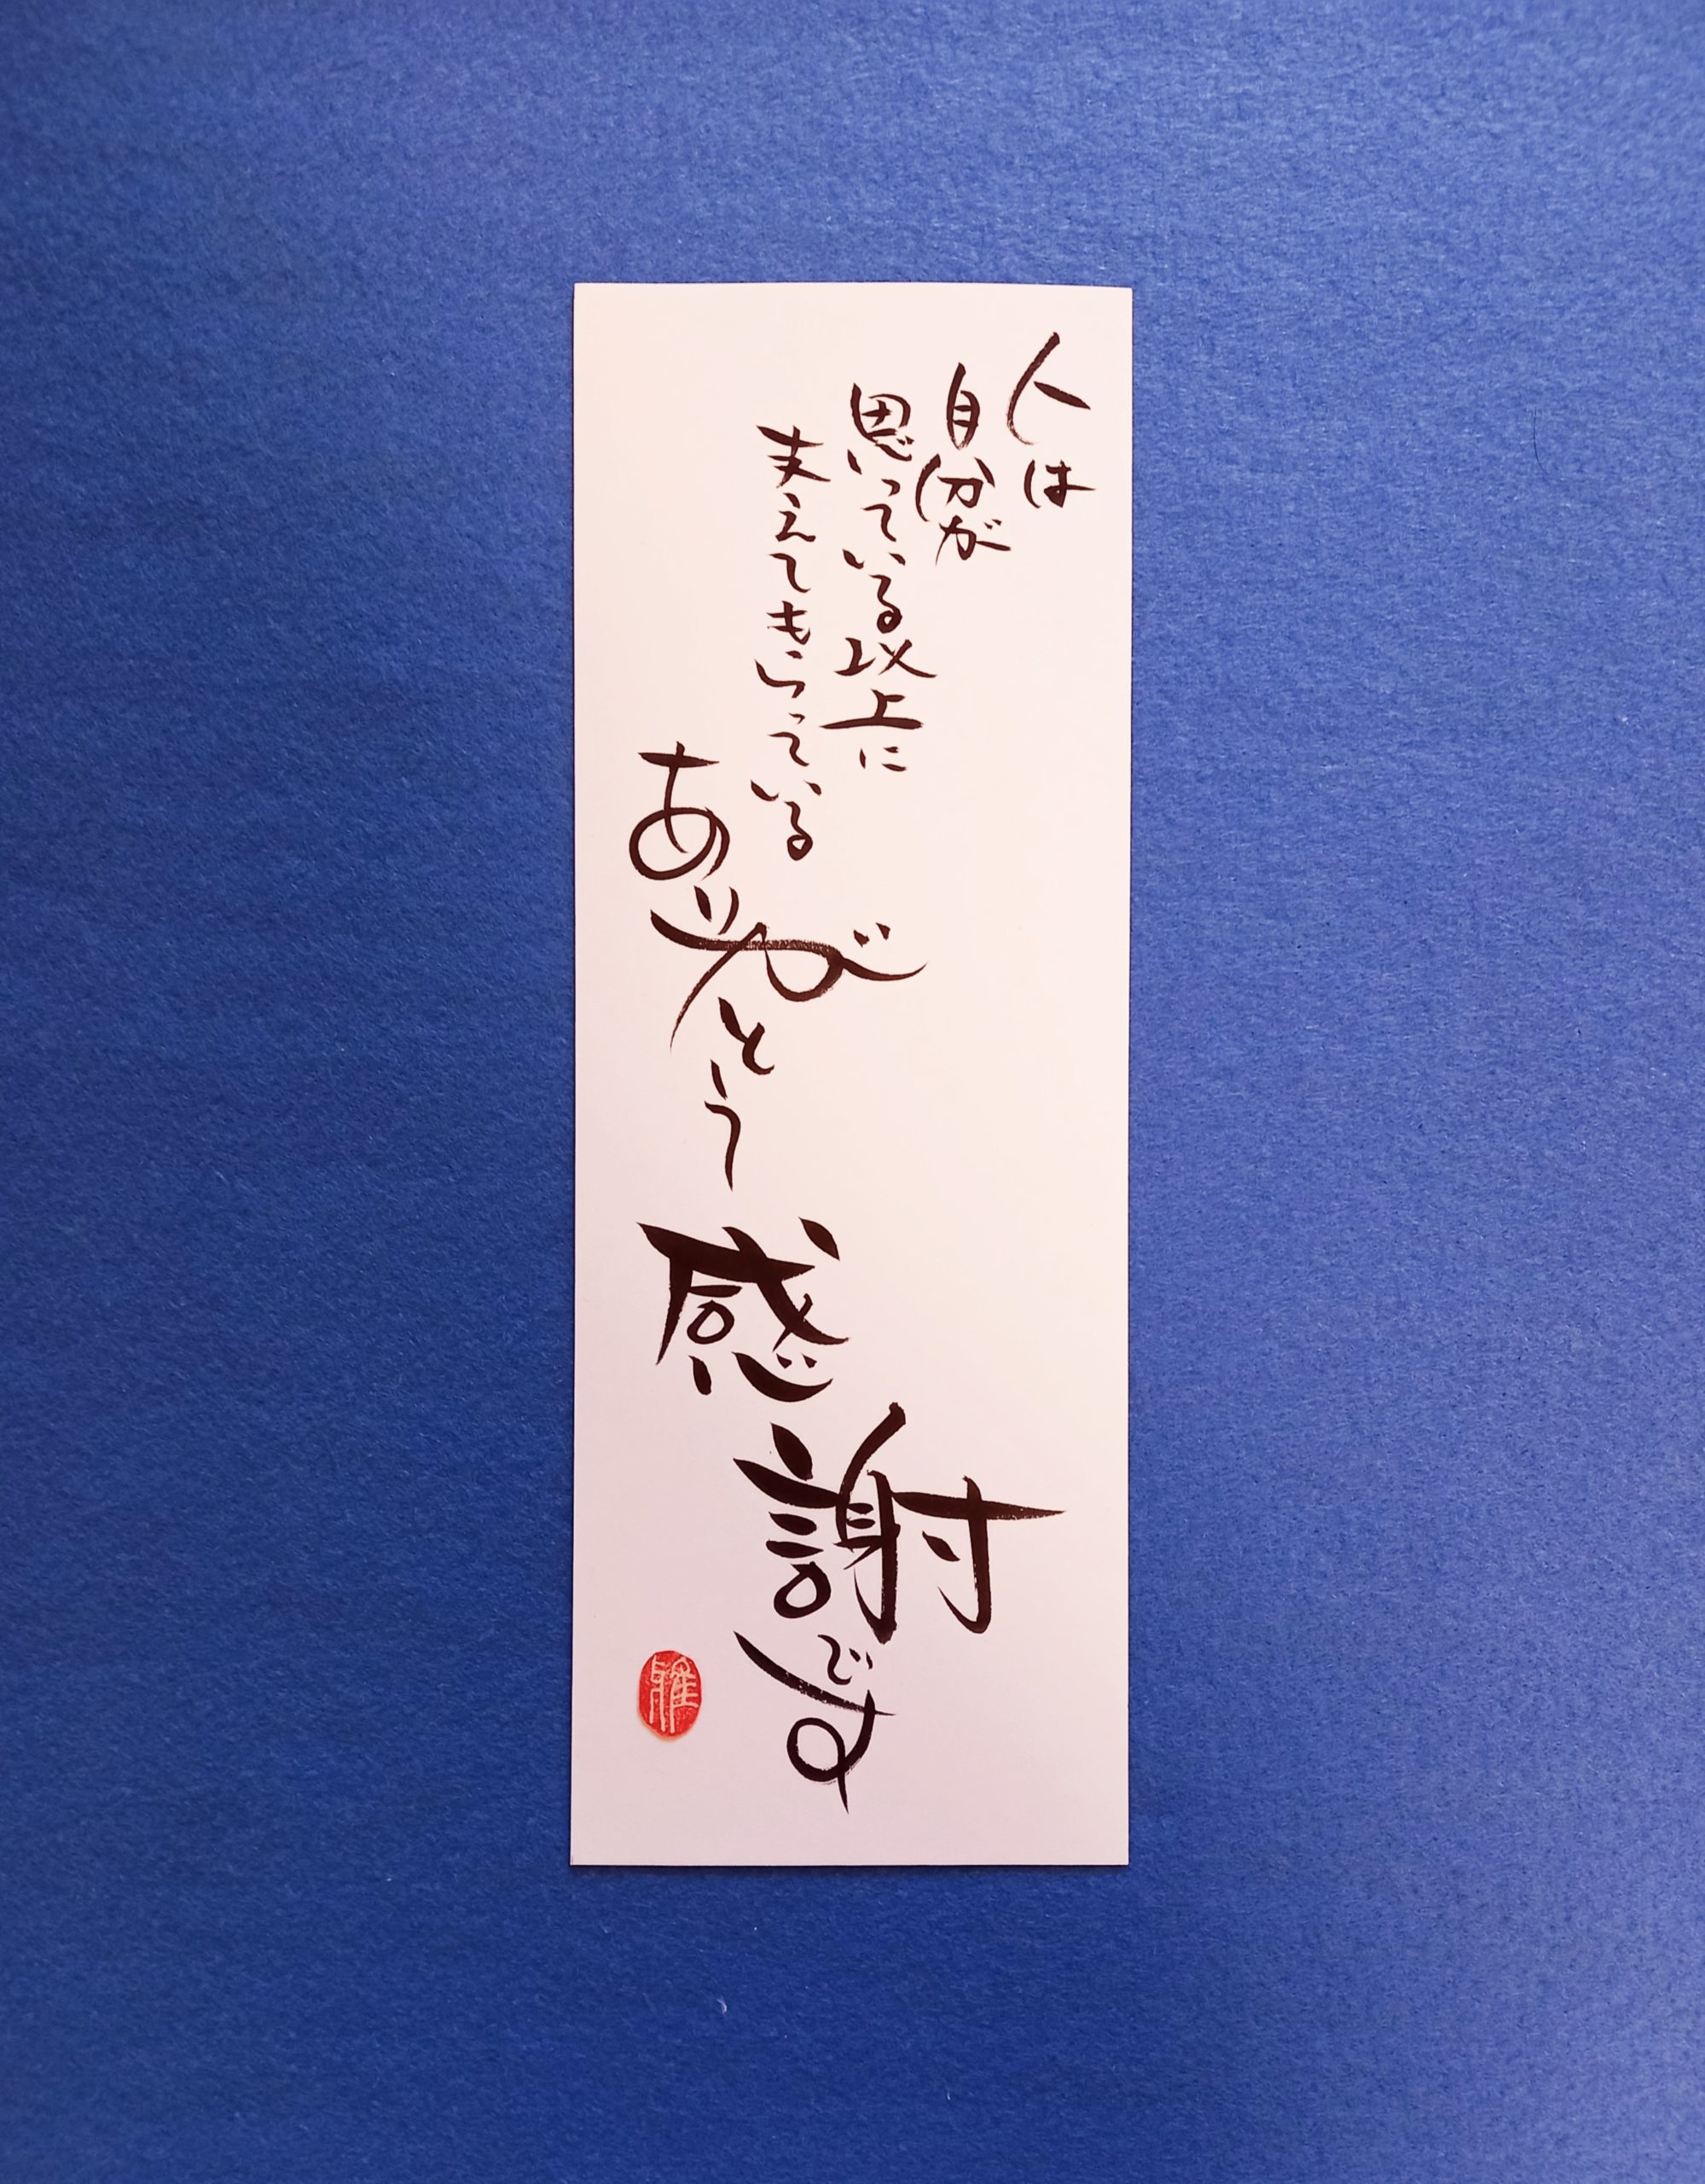 人は
自分が
思っている以上に
支えてもらっている
ありがとう
感謝です
雅